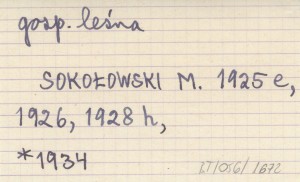 gosp. leśna
SOKOŁOWSKI M. 1925 e,
1926, 1928 h,
*1934
LT/056/1672